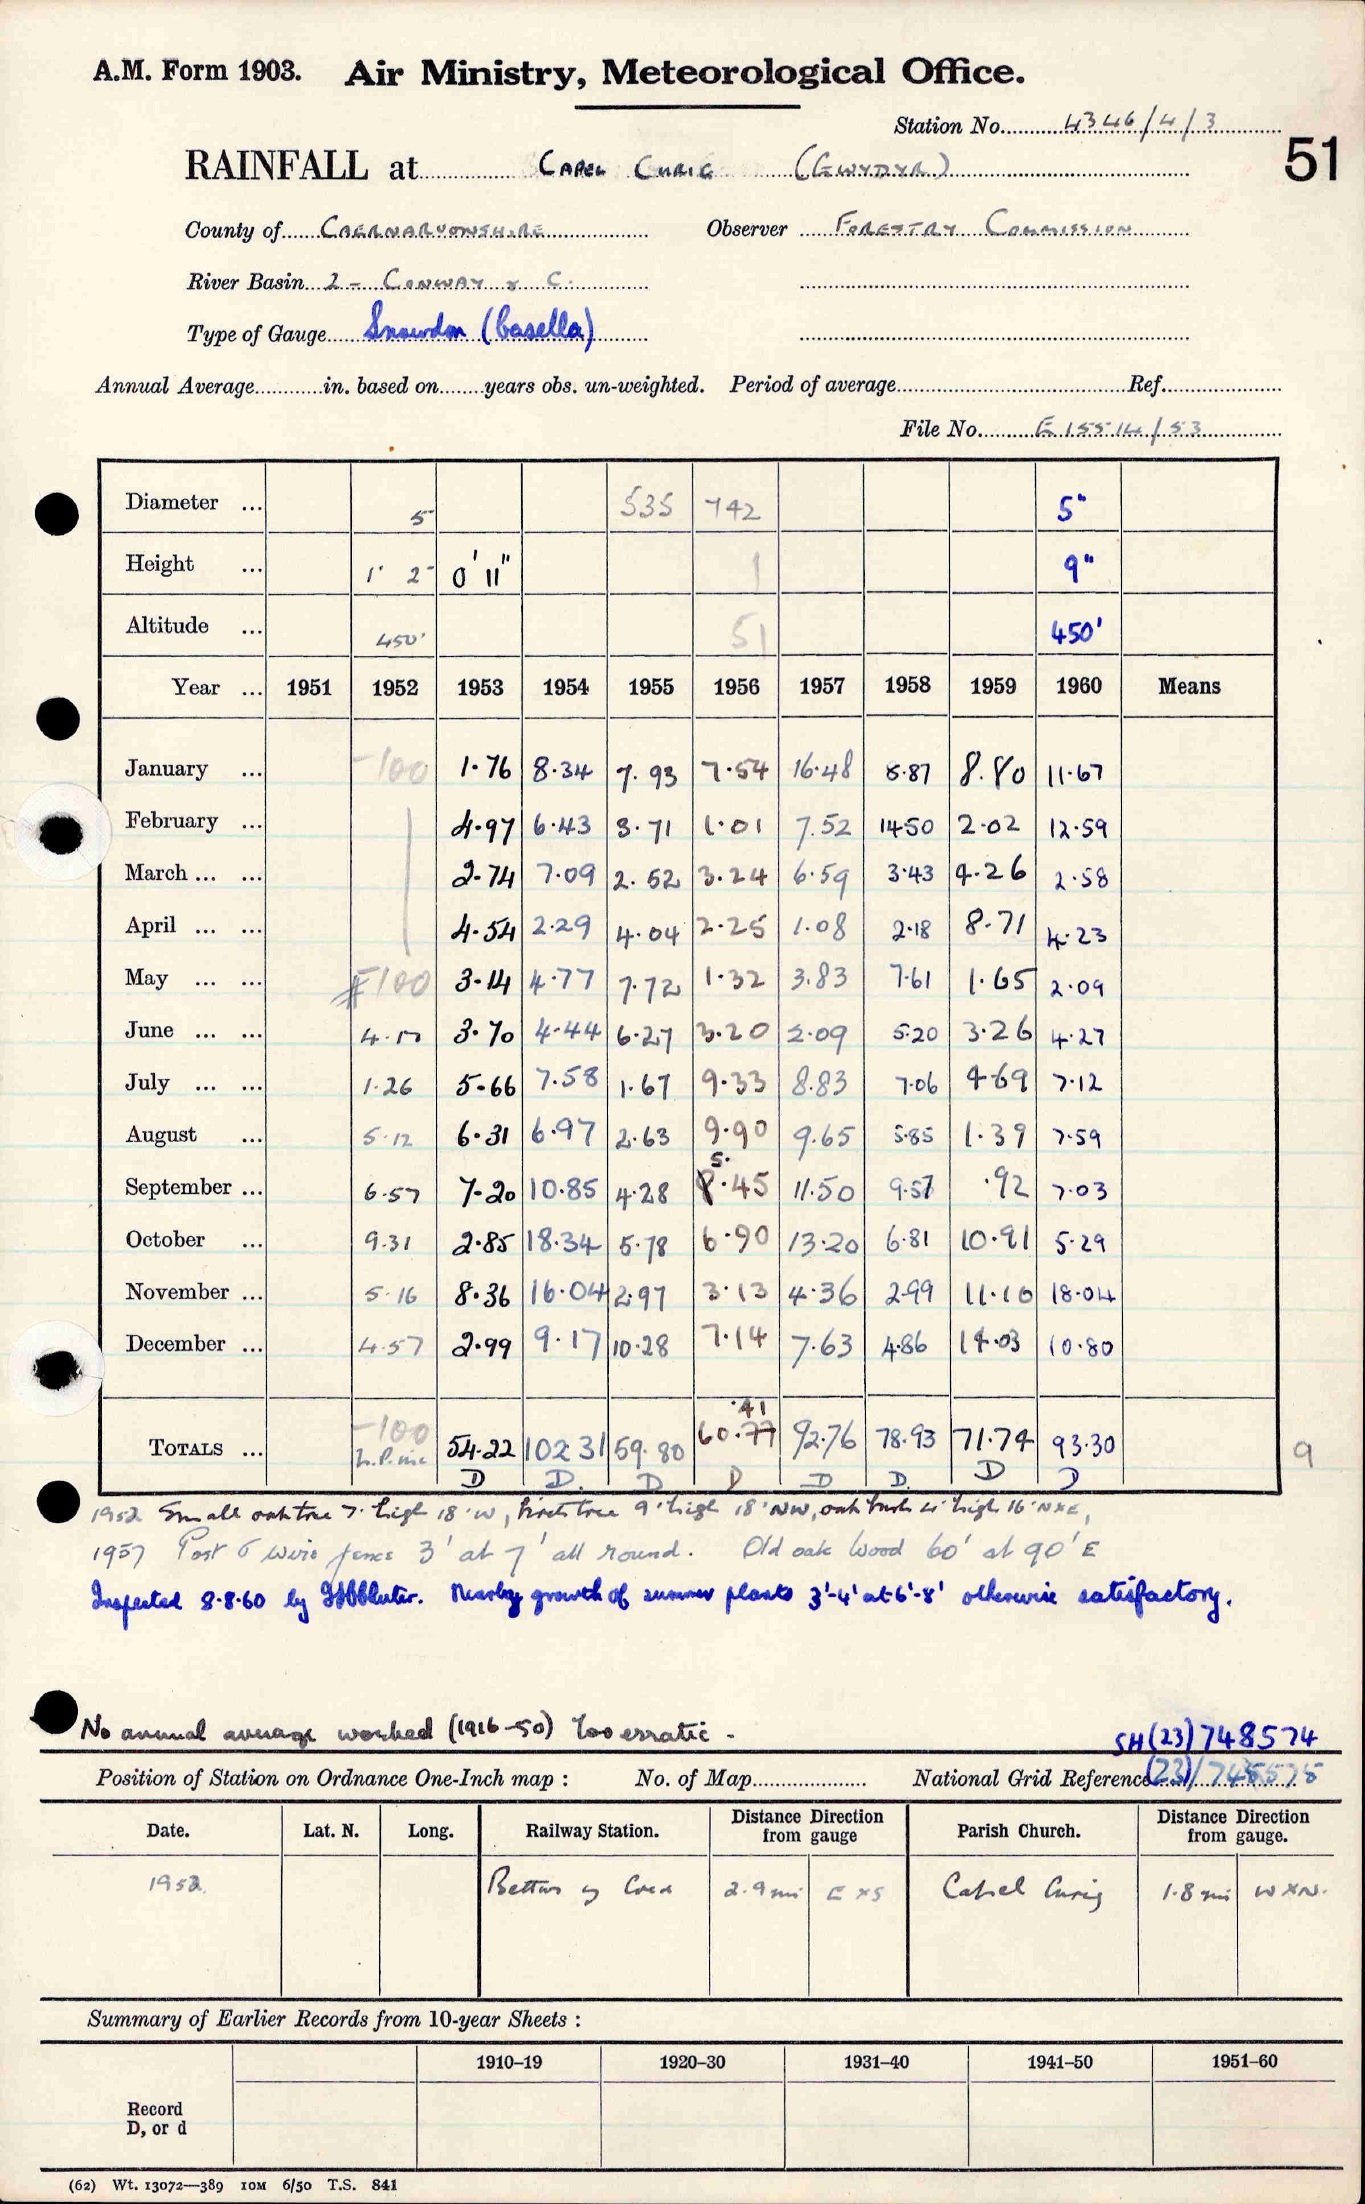 A.M. Form 1903. Air Ministry, Meteorological Office.
Station No. 4346/4/3
51
RAINFALL at CAPEL CURIG (GWYDYR)
County of CAERNARVONSHIRE Observer FORESTRY COMMISSION
River Basin 2 - CONWAY & C.
Type of Gauge Snowdon (Casella)
Annual Average in. based on years obs. un-weighted. Period of average Ref.
File No. E 15514/53
Diameter ... 5 535 742 5"
Height ... 1' 2" 0' 11" 1 9"
Altitude ... 450' 51 450'
Year ... 1951 1952 1953 1954 1955 1956 1957 1958 1959 1960 Means
January ... -100 1.76 8.34 7.93 7.54 16.48 8.87 8.80 11.67
February ... 4.97 6.43 3.71 1.01 7.52 14.50 2.02 12.59
March ... ... 2.74 7.09 2.52 3.24 6.59 3.43 4.26 2.58
April ... ... 4.54 2.29 4.04 2.25 1.08 2.18 8.71 4.23
May ... ... -100 3.14 4.77 7.72 1.32 3.83 7.61 1.65 2.09
June ... ... 4.17 3.70 4.44 6.27 3.20 2.09 5.20 3.26 4.27
July ... ... 1.26 5.66 7.58 1.67 9.33 8.83 7.06 4.69 7.12
August ... 5.12 6.31 6.97 2.63 9.90 9.65 5.85 1.39 7.59
September ... 6.57 7.20 10.85 4.28 5. 8.45 11.50 9.57 .92 7.03
October ... 9.31 2.85 18.34 5.78 6.90 13.20 6.81 10.91 5.29
November ... 5.16 8.36 16.04 2.97 3.13 4.36 2.99 11.10 18.04
December ... 4.57 2.99 9.17 10.28 7.14 7.63 4.86 14.03 10.80
.41
TOTALS ... -100 54.22 102.31 59.80 60.77 92.76 78.93 71.74 93.30 9
D D. D D D D. D D
1952 Small oak tree 7' high 18' W, birch tree 9' high 18' NW, oak bush 4' high 16' NxE,
1957 Post & wire fence 3' at 7' all round. Old oak wood 60' at 90' E
Inspected 8.8.60 by Nearby growth of summer plants 3'-4' at 6'-8' otherwise satisfactory.
No annual average worked (1916-50) Too erratic -
SH (23) 748574
Position of Station on Ordnance One-Inch map : No. of Map National Grid Reference (23)/748575
Date. Lat. N. Long. Railway Station. Distance from gauge Direction Parish Church. Distance from gauge. Direction
1952 Bettws y Coed 2.9 mi E x S Capel Curig 1.8 mi W x N.
Summary of Earlier Records from 10-year Sheets :
1910-19 1920-30 1931-40 1941-50 1951-60
Record
D, or d
(62) Wt. 13072—389 10M 6/50 T.S. 841